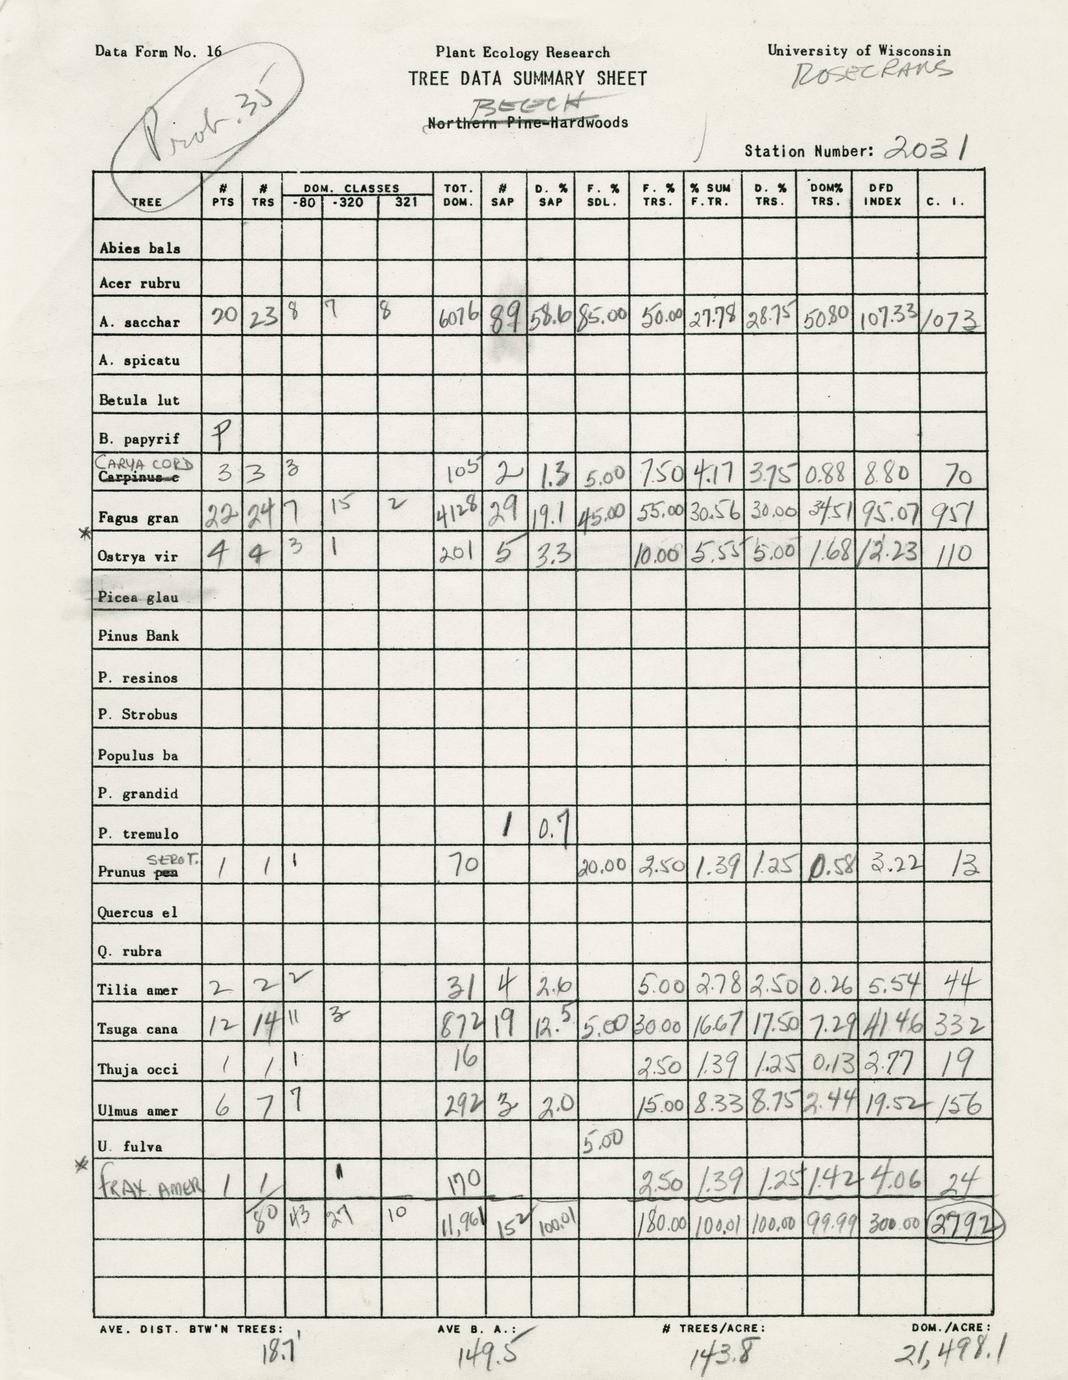 Data Form No. 16
Plant Ecology Research
University of Wisconsin
Prob. 35
TREE DATA SUMMARY SHEET
ROSECRANS
BEECH
Northern Pine-Hardwoods
Station Number: 2031
TREE # PTS # TRS DOM. CLASSES -80 -320 321 TOT. DOM. # SAP D. % SAP F. % SDL. F. % TRS. % SUM F.TR. D. % TRS. DOM% TRS. DFD INDEX C. I.
Abies bals
Acer rubru
A. sacchar 20 23 8 7 8 6076 89 58.6 85.00 50.00 27.78 28.75 50.80 107.33 1073
A. spicatu
Betula lut
B. papyrif P
CARYA CORD
Carpinus c 3 3 3 105 2 1.3 5.00 7.50 4.17 3.75 0.88 8.80 70
Fagus gran 22 24 7 15 2 4128 29 19.1 45.00 55.00 30.56 30.00 34.51 95.07 951
* Ostrya vir 4 4 3 1 201 5 3.3 10.00 5.55 5.00 1.68 12.23 110
Picea glau
Pinus Bank
P. resinos
P. Strobus
Populus ba
P. grandid
P. tremulo 1 0.7
SEROT.
Prunus pen 1 1 1 70 20.00 2.50 1.39 1.25 0.58 3.22 13
Quercus el
Q. rubra
Tilia amer 2 2 2 31 4 2.6 5.00 2.78 2.50 0.26 5.54 44
Tsuga cana 12 14 11 3 872 19 12.5 5.00 30.00 16.67 17.50 7.29 41.46 332
Thuja occi 1 1 1 16 2.50 1.39 1.25 0.13 2.77 19
Ulmus amer 6 7 7 292 3 2.0 15.00 8.33 8.75 2.44 19.52 156
U. fulva 5.00
* FRAX. AMER 1 1 1 170 2.50 1.39 1.25 1.42 4.06 24
80 43 27 10 11,961 152 100.01 180.00 100.01 100.00 99.99 300.00 2792
AVE. DIST. BTW'N TREES: AVE B. A.: # TREES/ACRE: DOM./ACRE:
18.7' 149.5 143.8 21,498.1